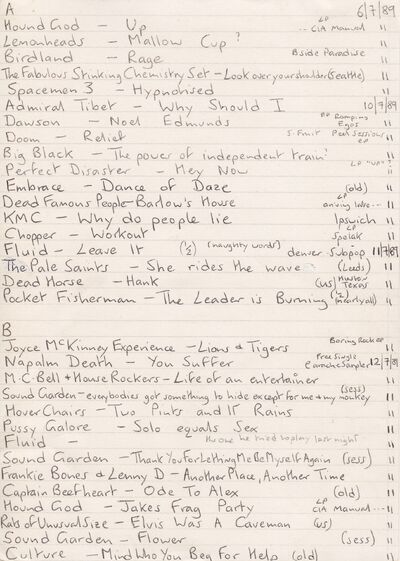 A 6/7/89
Hound God - Up LP -- CIA Manual "
Lemonheads - Mallow Cup? "
Birdland - Rage B side Paradise "
The Fabulous Stinking Chemistry Set - Look over your shoulder (Seattle) "
Spacemen 3 - Hypnotised "
Admiral Tibet - Why Should I 10/7/89
Dawson - Noel Edmunds EP Romping Egos "
Doom - Relief S. Fruit Peel Sessions EP "
Big Black - The power of independent train? "
Perfect Disaster - Hey Now LP "UP"? "
Embrace - Dance of Daze (old) "
Dead Famous People - Barlow's House LP arriving late --- "
KMC - Why do people lie Ipswich "
Chopper - Workout LP "
Fluid - Leave It (½) (naughty words) denver - Subpop 11/7/89
The Pale Saints - She rides the wave (Leeds) "
Dead Horse - Hank (US) Huston Texas "
Pocket Fisherman - The Leader is Burning (½) (nearly all) "
B
Joyce McKinney Experience - Lions & Tigers Boring Rock EP "
Napalm Death - You Suffer Free Single Earache Sampler 12/7/89
M.C. Bell & House Rockers - Life of an entertainer "
Sound Garden - everybodies got something to hide except for me & my monkey (sess) "
Hover Chairs - Two Pints and IT Rains "
Pussy Galore - Solo equals Sex "
Fluid - the one he tried to play last night "
Sound Garden - Thank You For Letting Me Be Myself Again (sess) "
Frankie Bones & Lenny D - Another Place, Another Time "
Captain Beefheart - Ode To Alex (old) "
Hound God - Jakes Frag Party LP CIA Manual --- "
Rats of Unusual Size - Elvis Was A Caveman (US) "
Sound Garden - Flower (sess) "
Culture - Mind Who You Beg For Help (old) "